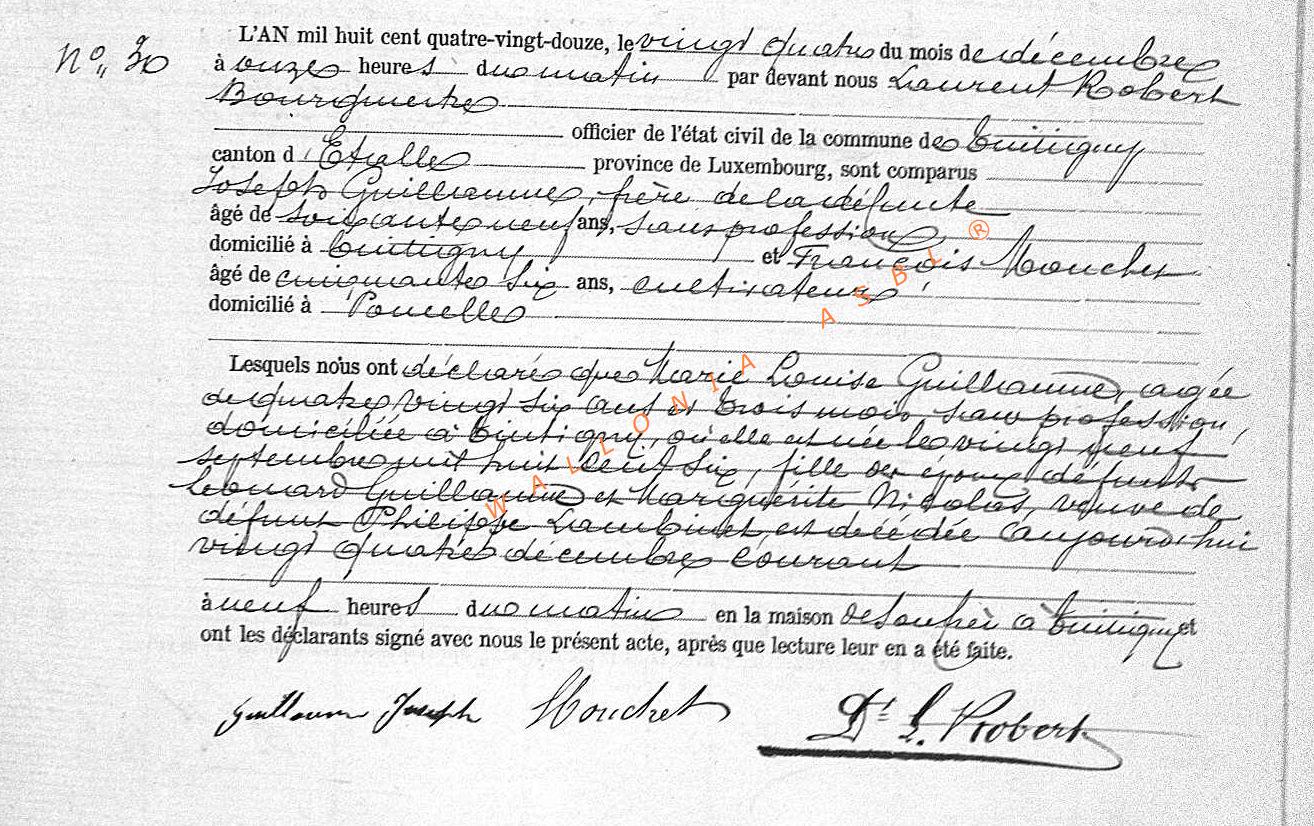 N° 30
L'AN mil huit cent quatre-vingt-douze, le vingt quatre du mois de décembre
à onze heures du matin par devant nous Laurent Robert
Bourgmestre
officier de l'état civil de la commune de Tintigny
canton d'Etalle province de Luxembourg, sont comparus
Joseph Guillaume, frère de la défunte
âgé de soixante neuf ans, sans profession,
domicilié à Tintigny et François Mouchet
âgé de cinquante six ans, cultivateur,
domicilié à Poncelle
Lesquels nous ont déclaré que Marie Louise Guillaume, agée
de quatre vingt six ans et trois mois, sans profession,
domiciliée à Tintigny, qu'elle est née le vingt neuf
septembre mil huit cent six, fille des époux défunts
Léonard Guillaume et Marguérite Nicolas, veuve de
défunt Philippe Lambinet, est decédée aujourd'hui
vingt quatre décembre courant
à neuf heures du matin en la maison de à Tintigny et
ont les déclarants signé avec nous le présent acte, après que lecture leur en a été faite.
Guillaume Joseph Mouchet Dr L. Robert
WALLONIA ASBL ®